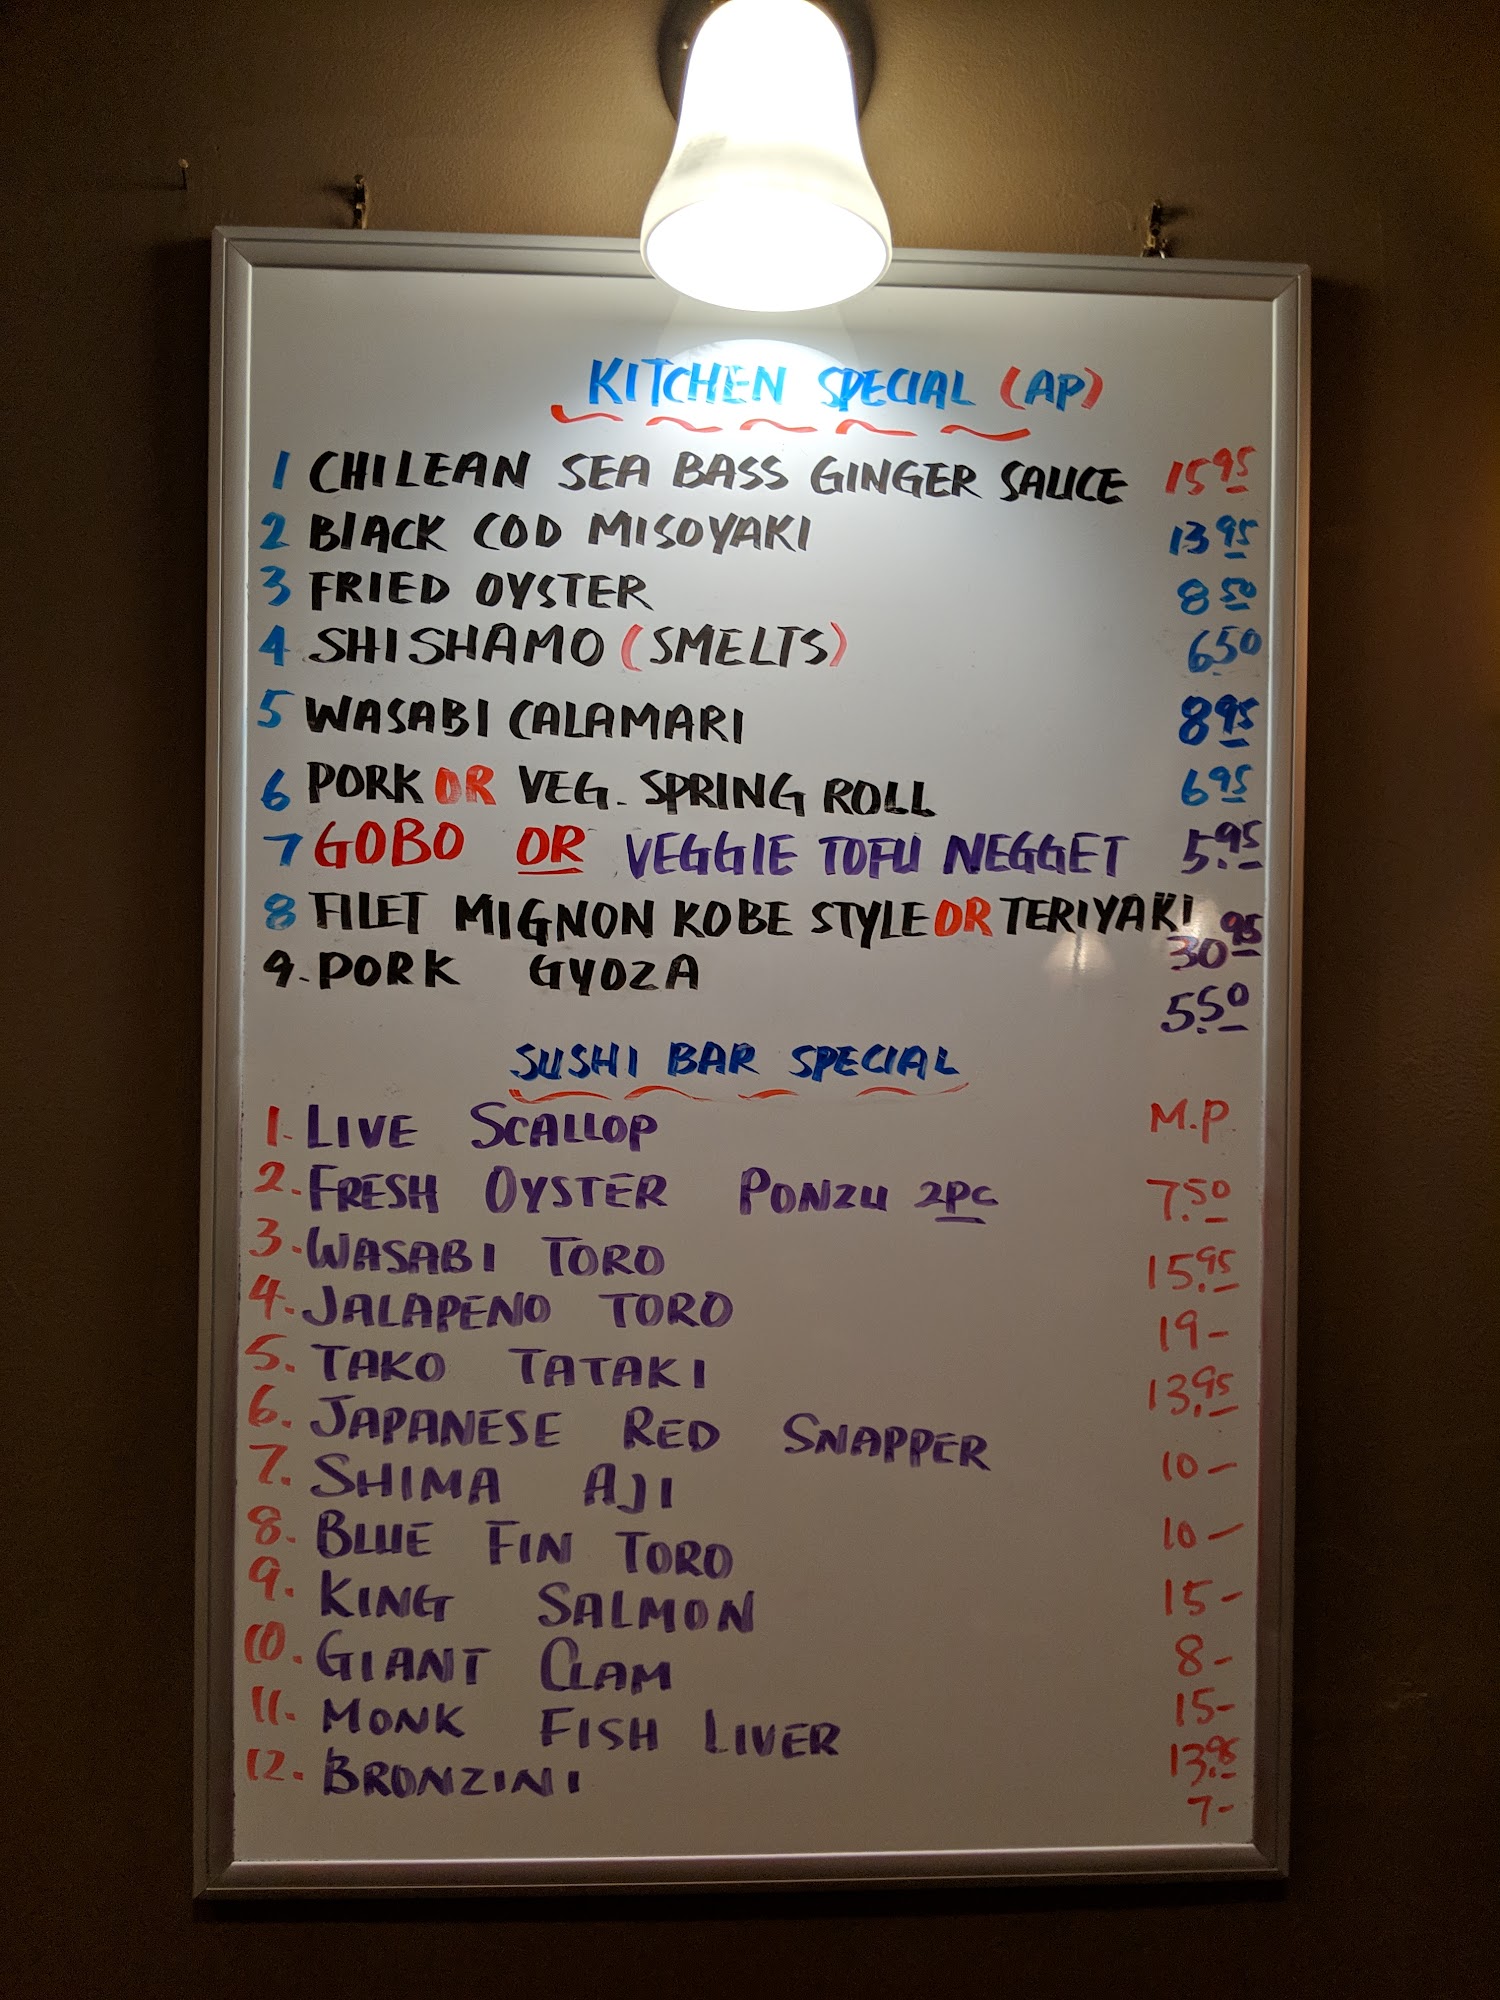 KITCHEN SPECIAL (AP)
1 CHILEAN SEA BASS GINGER SAUCE 15 95
2 BLACK COD MISOYAKI 13 95
3 FRIED OYSTER 8 50
4 SHISHAMO (SMELTS) 6.50
5 WASABI CALAMARI 8 95
6 PORK OR VEG. SPRING ROLL 6 95
7 GOBO OR VEGGIE TOFU NEGGET 5.95
8 FILET MIGNON KOBE STYLE OR TERIYAKI 30 95
9. PORK GYOZA 5.50
SUSHI BAR SPECIAL
1. LIVE SCALLOP M.P.
2. FRESH OYSTER PONZU 2PC 7.50
3. WASABI TORO 15.95
4. JALAPENO TORO 19-
5. TAKO TATAKI 13.95
6. JAPANESE RED SNAPPER 10-
7. SHIMA AJI 10-
8. BLUE FIN TORO 15-
9. KING SALMON 8-
10. GIANT CLAM 15-
11. MONK FISH LIVER 13.95
12. BRONZINI 7-